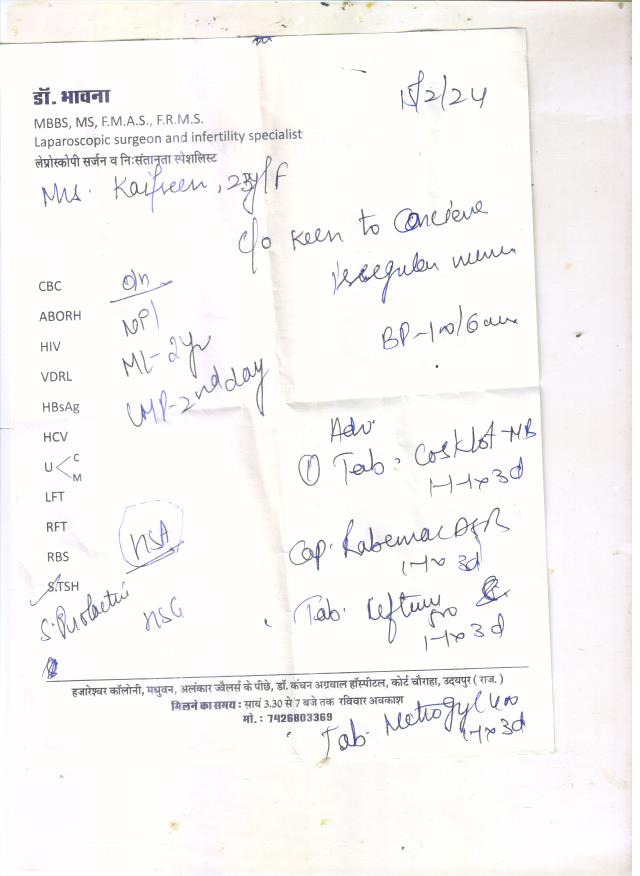 डॉ. भावना
MBBS, MS, F.M.A.S., F.R.M.S.
Laparoscopic surgeon and infertility specialist
लेप्रोस्कोपी सर्जन व निःसंतानता स्पेशलिस्ट
15/2/24
Kaifreen, 23y/F
c/o Keen to Conceive
Irregular menses
BP-100/60
CBC
ABORH
HIV
VDRL
HBsAg
HCV
U < C M
LFT
RFT
RBS
S.TSH
O/H
ML-2yr
LMP-2nd day
HSA
HSG
S. Prolactin
Adv.
① Tab. Cosklot-MB
1-1-1x3d
Cap. Rabemac DSR
1-1x3d
Tab. Ceftum 500
1-1x3d
Tab. Metrogyl 400
1-1x3d
हजारेश्वर कॉलोनी, मधुवन, अलंकार ज्वैलर्स के पीछे, डॉ. कंचन अग्रवाल हॉस्पीटल, कोर्ट चौराहा, उदयपुर ( राज. )
मिलने का समय : सायं 3.30 से 7 बजे तक रविवार अवकाश
मो. : 7426803369